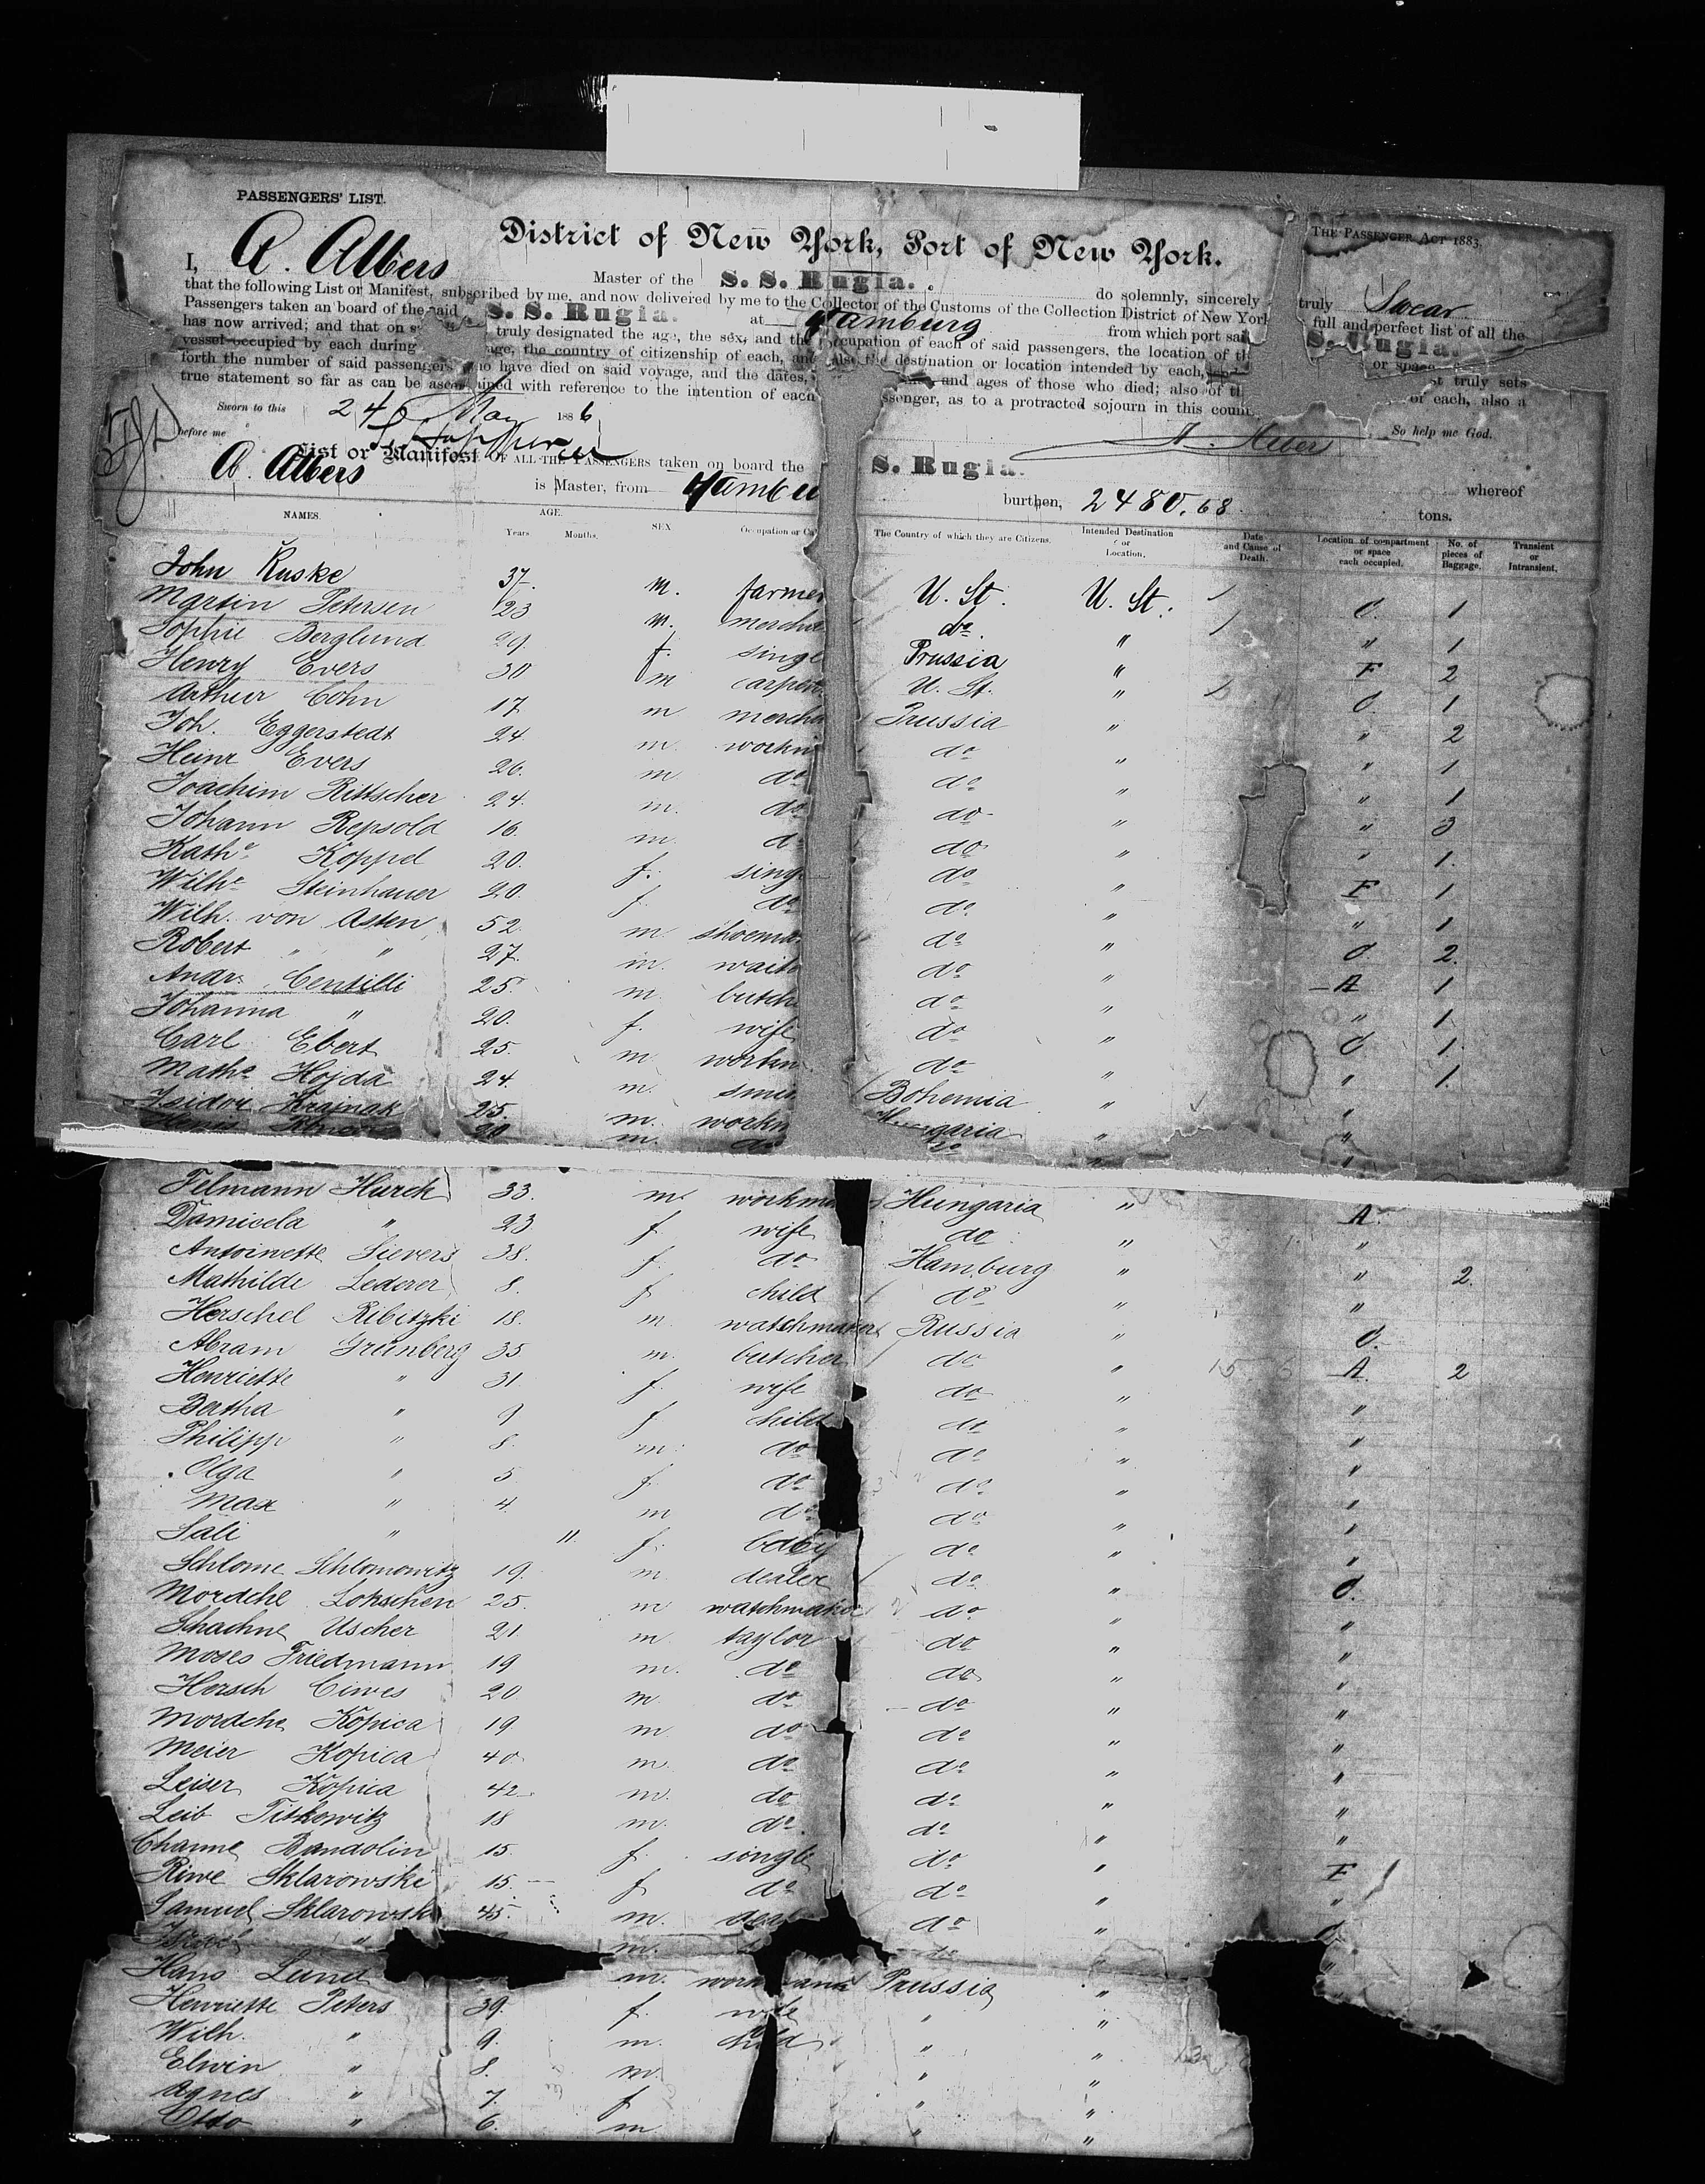 PASSENGERS' LIST.
THE PASSENGER ACT 1883.
District of New York, Port of New York.
I, A. Albers Master of the S. S. Rugia. do solemnly, sincerely truly Swear
that the following List or Manifest, subscribed by me, and now delivered by me to the Collector of the Customs of the Collection District of New York full and perfect list of all the
Passengers taken on board of the said S. S. Rugia. at Hamburg from which port said S. Rugia.
has now arrived; and that on truly designated the age, the sex, and the occupation of each of said passengers, the location of or space
vessel occupied by each during the country of citizenship of each, and also the destination or location intended by each, truly sets
forth the number of said passengers who have died on said voyage, and the dates, and ages of those who died; also of of each, also a
true statement so far as can be ascertained with reference to the intention of each passenger, as to a protracted sojourn in this
So help me God.
Sworn to this 24 May 1886
before me
List or Manifest OF ALL THE PASSENGERS taken on board the S. Rugia. whereof
A. Albers is Master, from burthen, 2480.68 tons.
NAMES. AGE. SEX Occupation or The Country of which they are Citizens. Intended Destination or Location. Date and Cause of Death. Location of compartment or space each occupied. No. of pieces of Baggage. Transient or Intransient.
Years Months.
John Kuske 37. m. farmer U. St. U. St. O. 1
Martin Petersen 23 m. do " " 1
Sophie Berglund 29. f. Prussia " F 2
Henry Evers 30 m U. St. " O. 1
Arthur Cohn 17 m Prussia " " 2
Joh. Eggerstedt 24 m. do " " 1
Heinr Evers 26. m do do " " 1
Joachim Rittscher 24. m. do do " " 3
Johann Repsold 16. m. do " " 1.
Kath. Koppel 20. f. do " F 1
Wilh. Steinhauer 20. f do do " " 1
Wilh. von Asten 52. m do " O 2.
Robert " " 27. m. do " A 1
Andr. Centilli 25. m. do " " 1
Johanna " 20. f. wife do " O 1
Carl Ebert 25. m do " " 1.
Math. Hojda 24. m. Bohemia " "
Isidor Krajnak 25. m. Hungaria " "
20 m. do do "
Telmann Hurck 33. m. Hungaria " A.
Damicela " 23 f wife do " "
Antoinette Sievers 38. f. do Hamburg " " 2.
Mathilde Lederer 8. f child do " "
Herschel Ribitzki 18. m. watchmaker Russia " O.
Abram Grünberg 35 m. butcher do " A. 2
Henriette " 31. f. wife do " "
Bertha " 9 f child do " "
Philipp " 8. m. do do " "
Olga " 5 f. do do " "
Max " 4. m do do " "
Sali " 11. f. baby do " "
Schlome Schlomowitz 19. m. dealer do " O.
Mordche Lokschen 25. m watchmaker do " "
Schachne Uscher 21. m. taylor do " "
Moses Friedmann 19 m. do do " "
Hersch Ciwes 20. m. do do " "
Mordche Kopica 19. m. do do " "
Meier Kopica 40. m. do do " "
Leiser Kopica 42. m. do do " "
Leib Titkowitz 18 m. do. do " "
Channe Bandolin 15. f. single do " F
Riwe Sklarowski 15. f do do " "
Samuel Sklarowski 45. m. do " O.
" m. "
Hans Lund m. Prussia " "
Henriette Peters 39. f. wife " "
Wilh. " 9. m. child " "
Elwin " 8. m. " "
Agnes " 7. f " "
Otto " 6. m " "